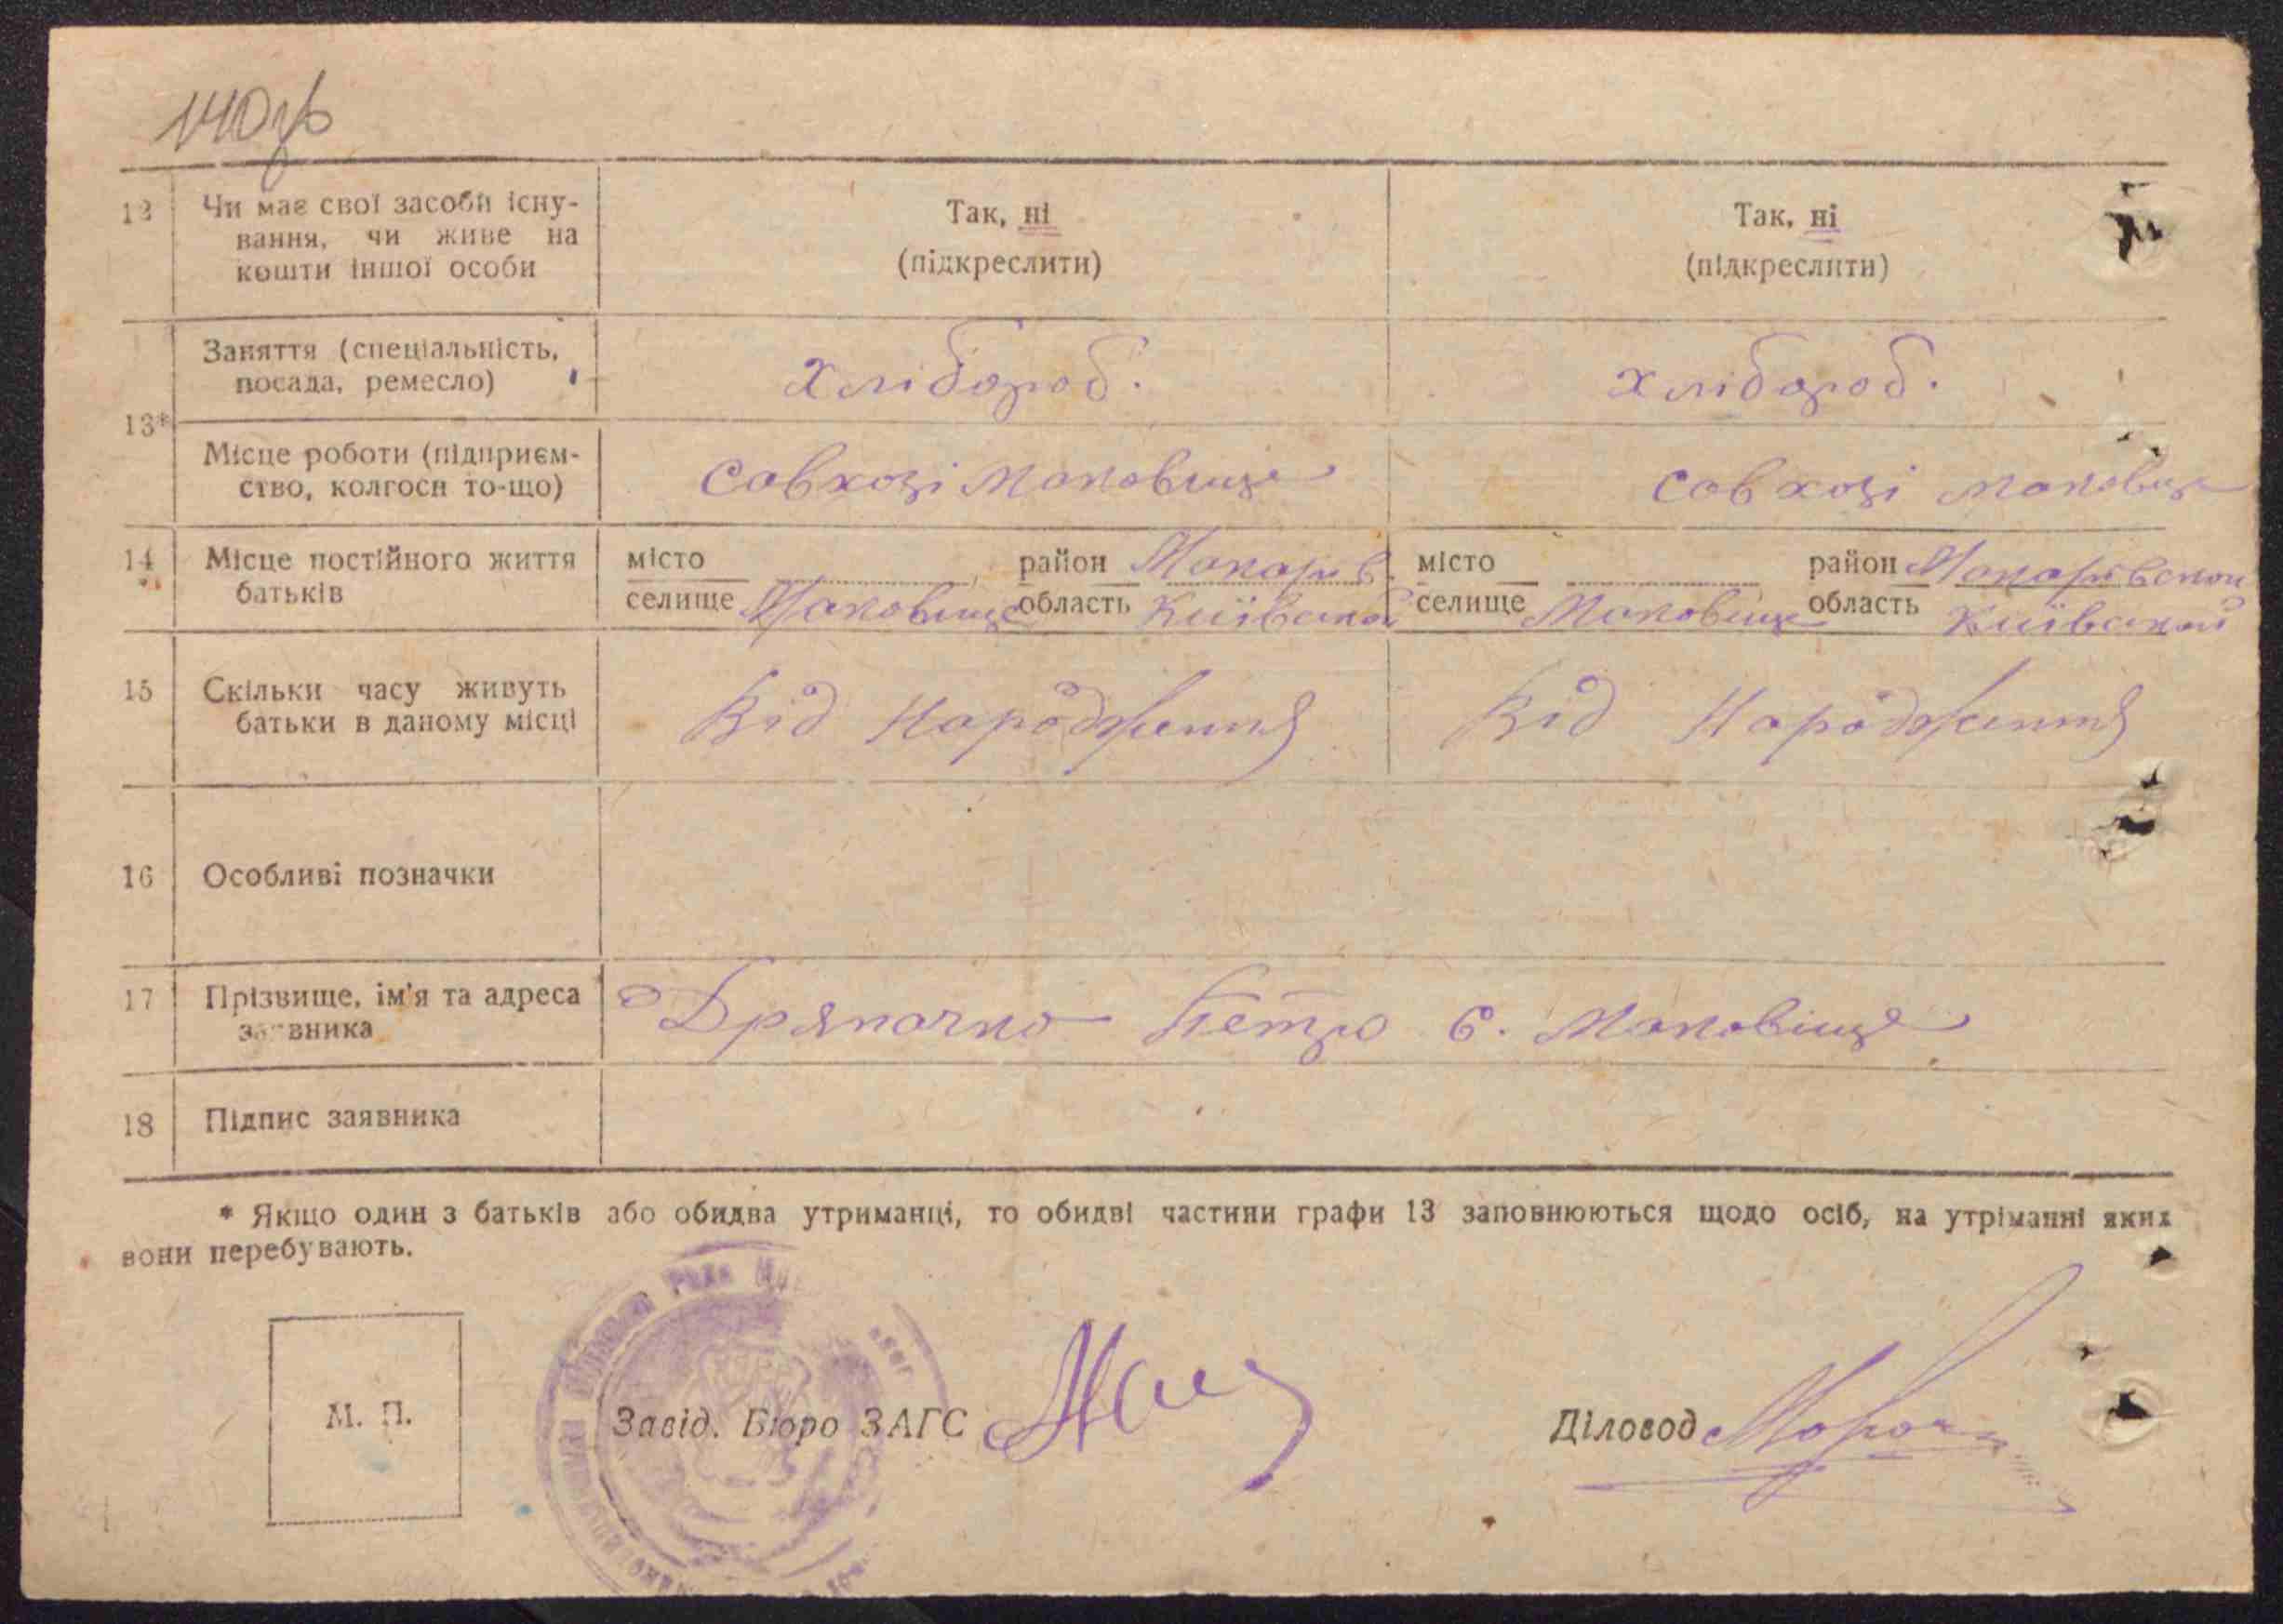 140 зв
12 Чи має свої засоби існу- Так, ні Так, ні
вання, чи живе на (підкреслити) (підкреслити)
кошти іншої особи
Заняття (спеціальність, хлібороб. хлібороб.
посада, ремесло)
13*
Місце роботи (підприєм- Совхозі Маковище совхозі Маковище
ство, колгосп то-що)
14 Місце постійного життя місто район Макарів. місто район Макарівской
батьків селище Маковище область Київской селище Маковище область Київской
15 Скільки часу живуть Від Народження Від Народження
батьки в даному місці
16 Особливі позначки
17 Прізвище, ім'я та адреса Дряпачко Петро с. Маковіще
заявника
18 Підпис заявника
* Якщо один з батьків або обидва утриманці, то обидві частини графи 13 заповнюються щодо осіб, на утріманні яких
вони перебувають.
М. П. Завід. Бюро ЗАГС Діловод